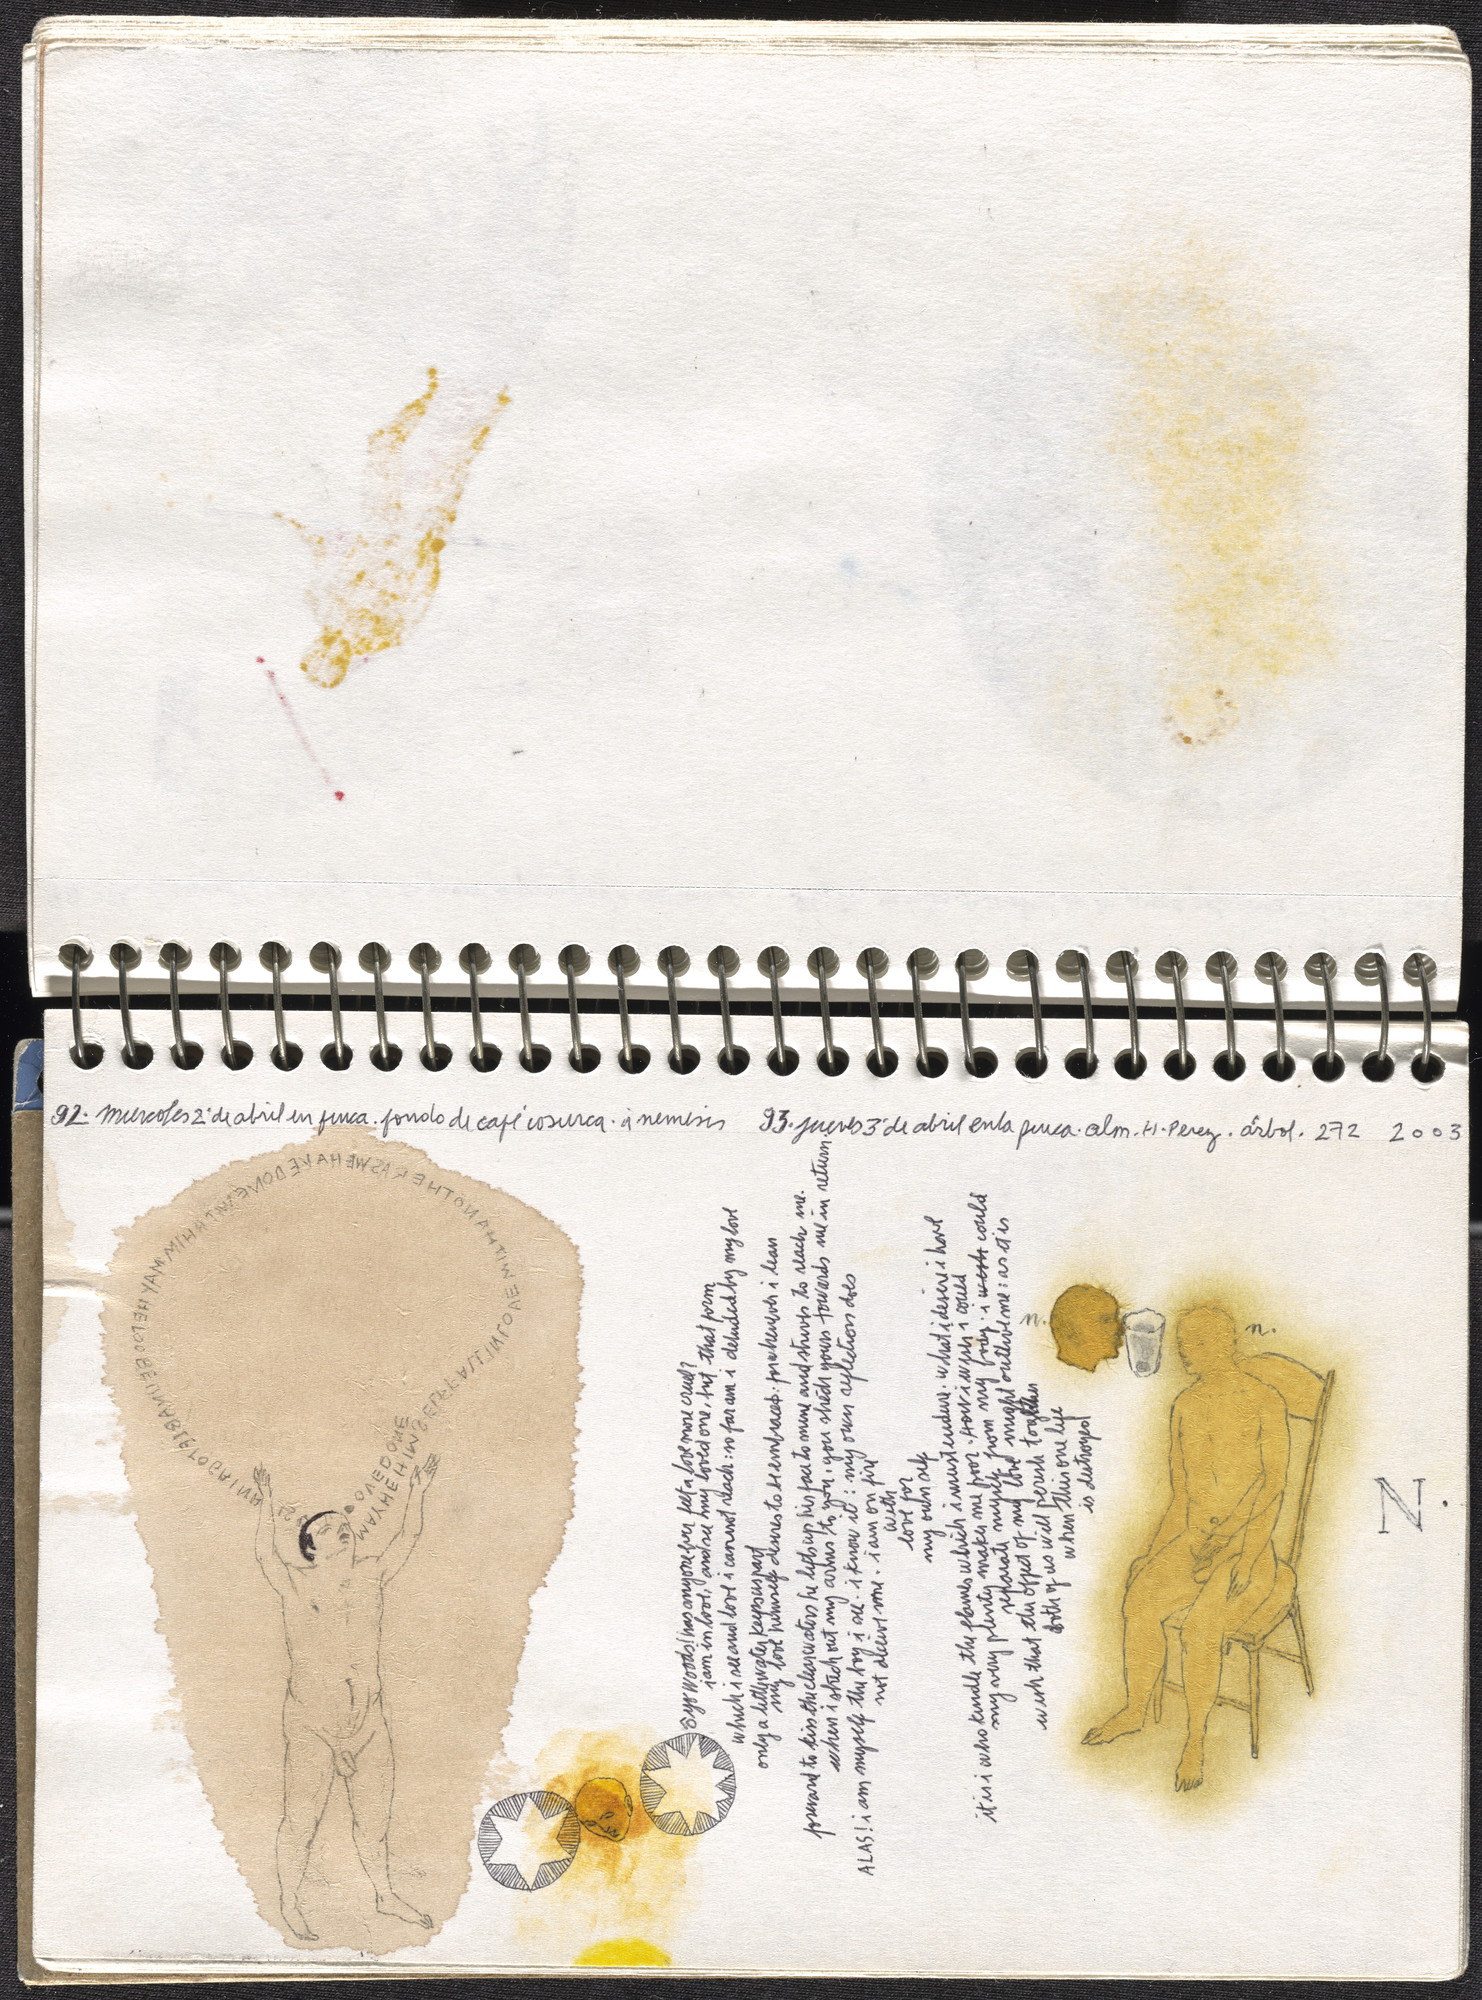 92. miercoles 2 de abril en finca. fondo de café cosurca. a nemesis
93. jueves 3 de abril en la finca. alm. H. Perez. árbol. 272 2003
MAY HE HIMSELF FALL IN LOVE WITH ANOTHER AS WE HAVE DONE WITH HIM MAY HE TOO BE UNABLE TO GAIN
LOVED ONE
O ye woods! has anyone ever felt a love more cruel?
i am in love, and see my loved one, but that form
which i see and love i cannot reach: so far am i deluded by my love
only a little water keeps us apart
my love himself desires to be embraced: for whenever i lean
forward to kiss the clear waters he lifts up his face to mine and strives to reach me.
when i stretch out my arms to you, you stretch yours towards me in return
ALAS! i am myself the boy i see. i know it: my own reflection does
not deceive me. i am on fire
with
love for
my own self
it is i who kindle the flames which i must endure. what i desire i have
my very plenty makes me poor. how i wish i could
separate myself from my body. i wish could
wish that the object of my love might outlive me: as it is
both of us will perish together
when this one life
is destroyed
n.
n.
N